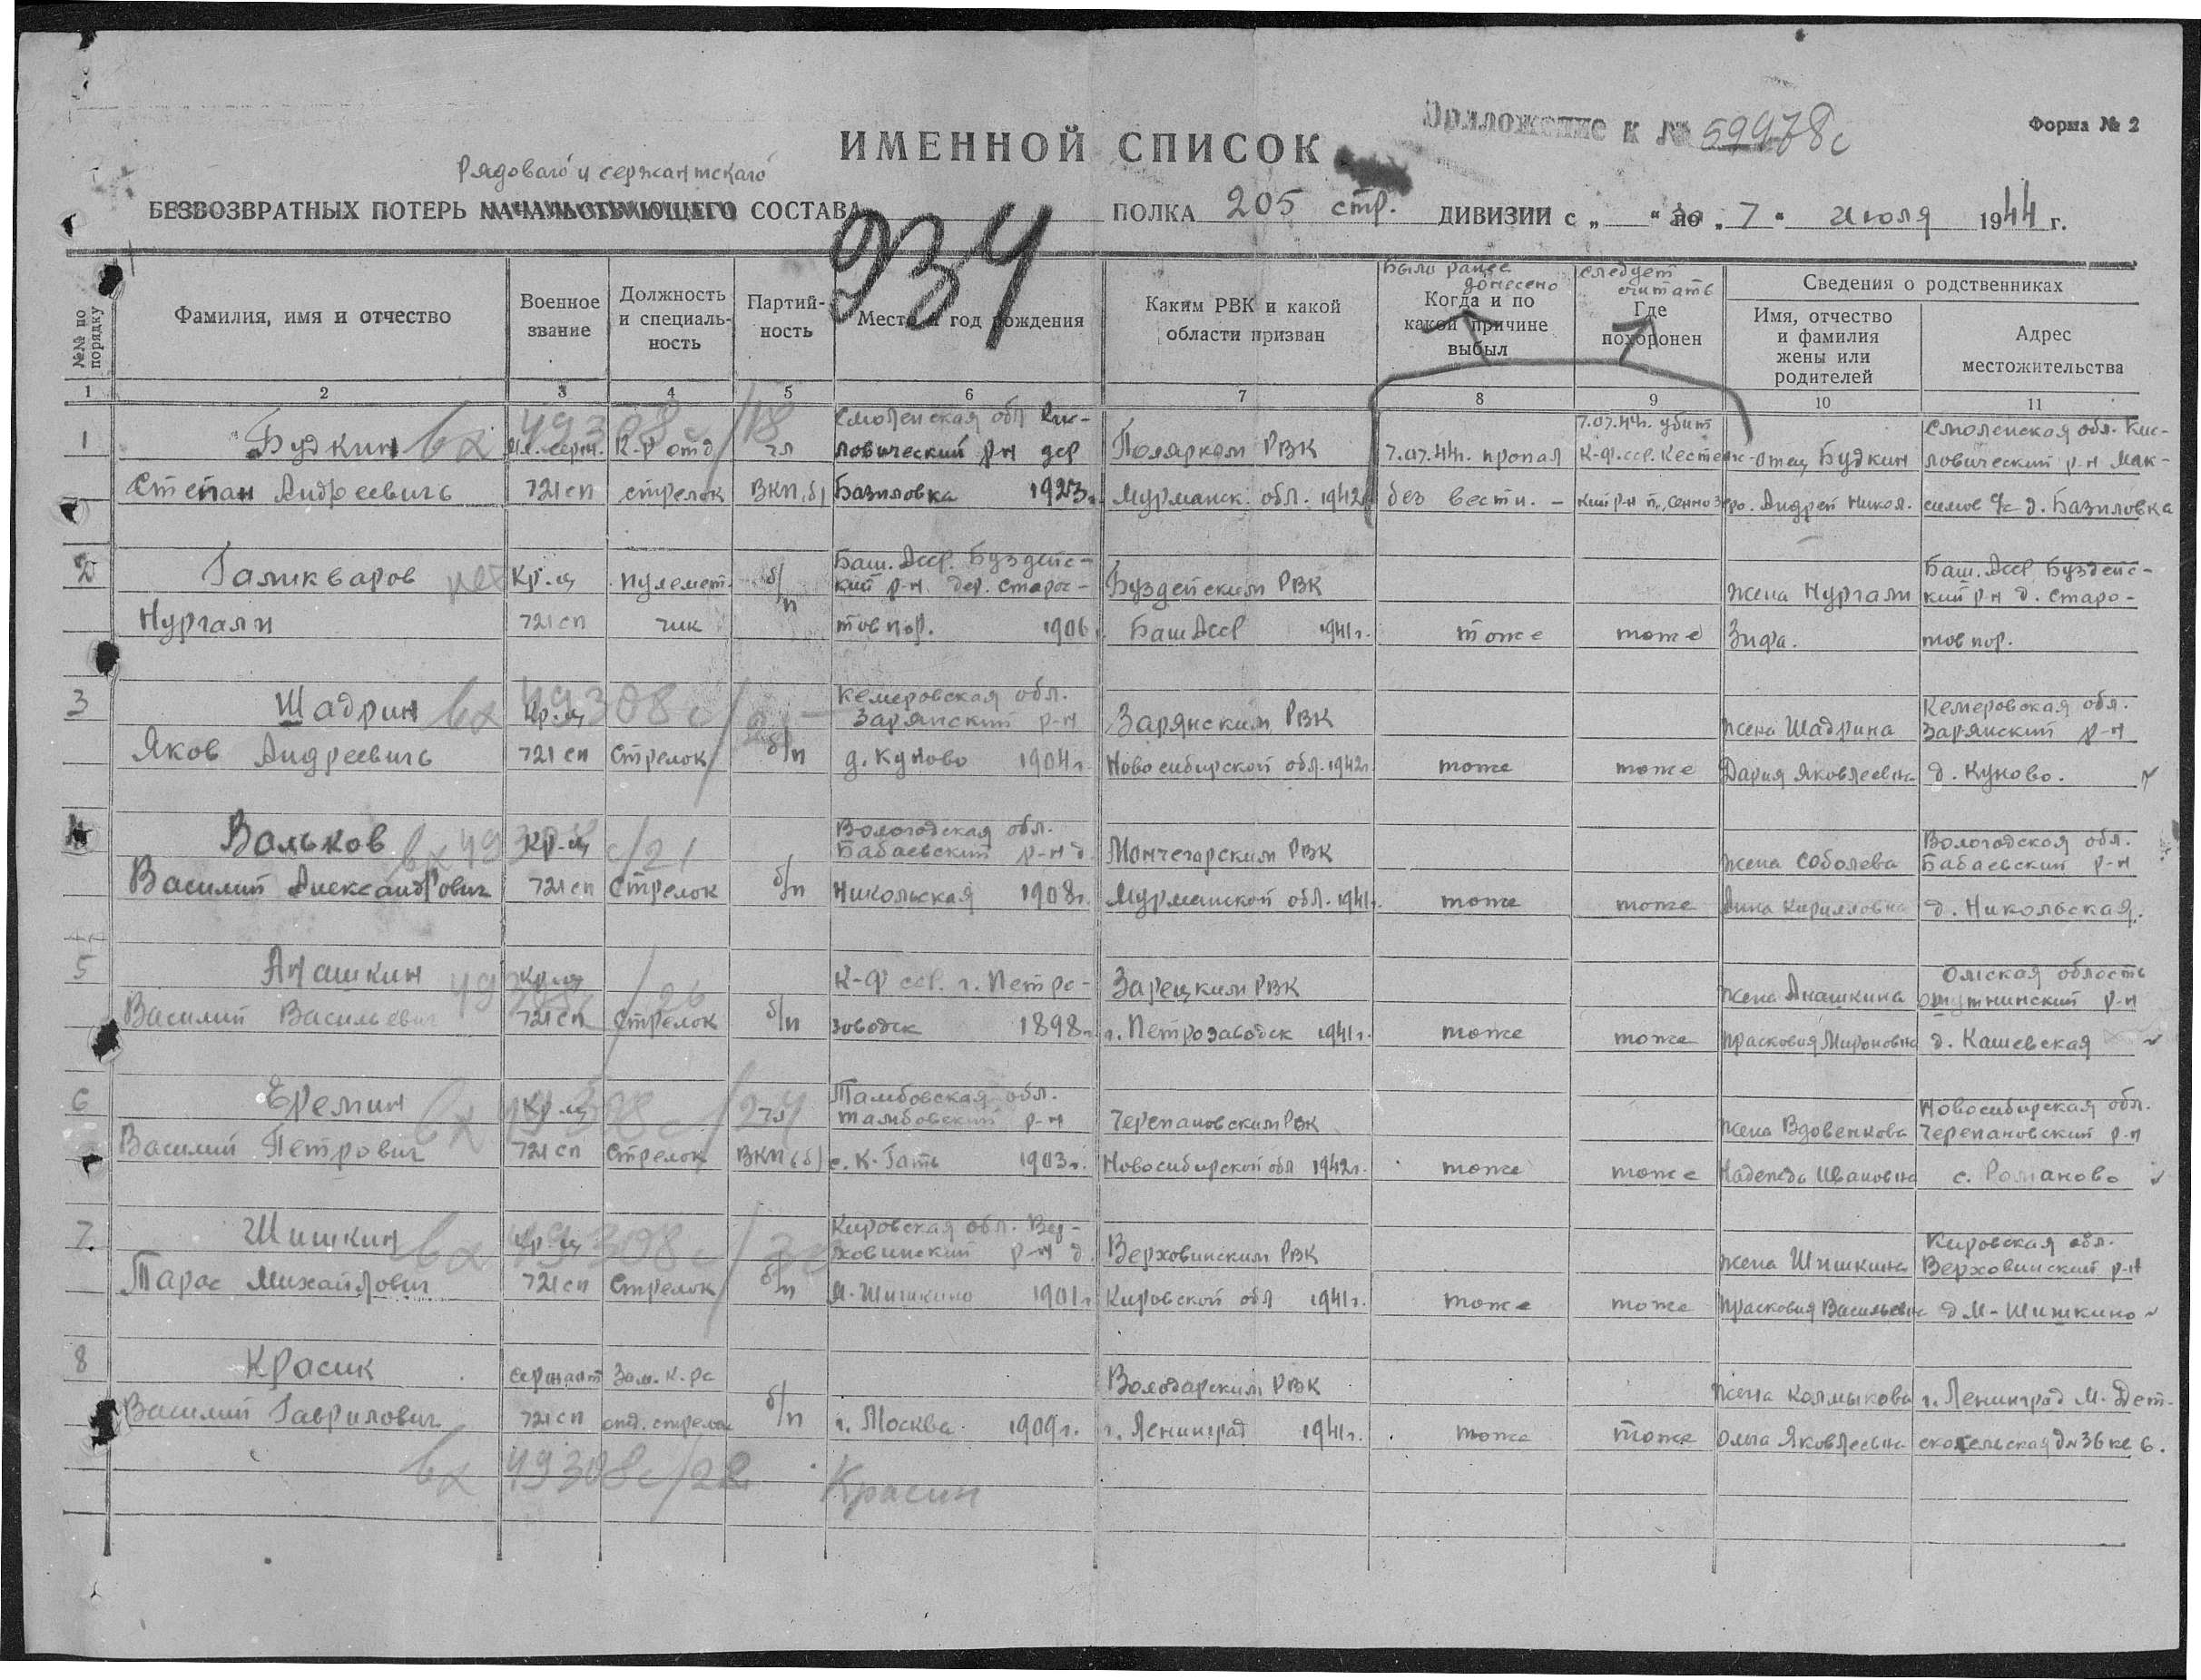 Приложение к № 59978с
Форма № 2
ИМЕННОЙ СПИСОК
Рядового и сержантского
БЕЗВОЗВРАТНЫХ ПОТЕРЬ НАЧАЛЬСТВУЮЩЕГО СОСТАВА ПОЛКА 205 стр. ДИВИЗИИ с „ “ по „ 7 “ июля 1944 г.
934
№№ по порядку
Фамилия, имя и отчество
Военное звание
Должность и специальность
Партийность
Место и год рождения
Каким РВК и какой области призван
было ранее донесено
Когда и по какой причине выбыл
следует считать
Где похоронен
Сведения о родственниках
Имя, отчество и фамилия жены или родителей
Адрес местожительства
1 2 3 4 5 6 7 8 9 10 11
вх 49308с/18
1 Будкин Мл. серж. К-р отд чл Смоленская обл Кис-
ловический р-н дер Полярном РВК 7.07.44г. пропал 7.07.44г. убит К-ф.сср. Кестень- отец Будкин Смоленская обл. Кис-
ловический р-н Мак-
Степан Андреевичь 721 сп стрелок ВКП(б) Базиловка 1923г. Мурманск. обл. 1942г. без вести. - Андрей Никол. д. Базиловка
2 Галикваров нет Кр-ц пулемет- б/п Баш. Асср. Буздейс-
кий р-н. дер. старос- Буздейским РВК жена Нургали Баш. Асср Буздейс-
кий р-н д. старо-
Нургали 721 сп чик товпор. 1906 БашАсср 1941г. тоже тоже Зифа. товпор.
вх 49308с/
3 Шадрин Кр-ц Кемеровская обл.
Зарянский р-н Зарянским РВК жена Шадрина Кемеровская обл.
Зарянский р-н
Яков Андреевичь 721 сп Стрелок б/п д. Куново 1904г. Новосибирской обл. 1942г. тоже тоже Дария Яковлевна д. Куново.
вх 49308с/21
4 Вальков Кр-ц Вологодская обл.
Бабаевский р-н д. Мончегорским РВК жена Соболева Вологодская обл.
Бабаевский р-н
Василий Александрович 721 сп Стрелок б/п Никольская 1908г. Мурманской обл. 1941г. тоже тоже Анна Кирилловна д. Никольская.
49308с/26
5 Анашкин Кр-ц К-Ф сср. г. Петро- Зарецким РВК жена Анашкина Омская область
омутнинский р-н
Василий Васильевич 721 сп Стрелок б/п заводск 1898г. г. Петрозаводск 1941г. тоже тоже Прасковия Мироновна д. Кашевская
вх 49308с/24
6 Еремин Кр-ц чл Тамбовская обл.
Тамбовский р-н Черепановским РВК жена Вдовенкова Новосибирская обл.
Черепановский р-н
Василий Петрович 721 сп Стрелок ВКП(б) с. К-Гать 1903г. Новосибирской обл 1942г. тоже тоже Надежда Ивановна с. Романово
вх 49308с/
7. Шишкин Кр-ц Кировская обл. Вер-
ховинский р-н д. Верховинским РВК жена Шишкина Кировская обл.
Верховинский р-н
Тарас Михайлович 721 сп Стрелок б/п М-Шишкино 1901г. Кировской обл 1941г. тоже тоже Прасковия Васильевна д М-Шишкино
8 Красик сержант Зам. К-ра Володарским РВК жена Колмыкова г. Ленинград М. Дет-
Василий Гаврилович 721 сп отд. стрелок б/п г. Москва 1909г. г. Ленинград 1941г. тоже тоже Ольга Яковлевна скосельская д№36 кв 6.
вх 49308с/22 Красин